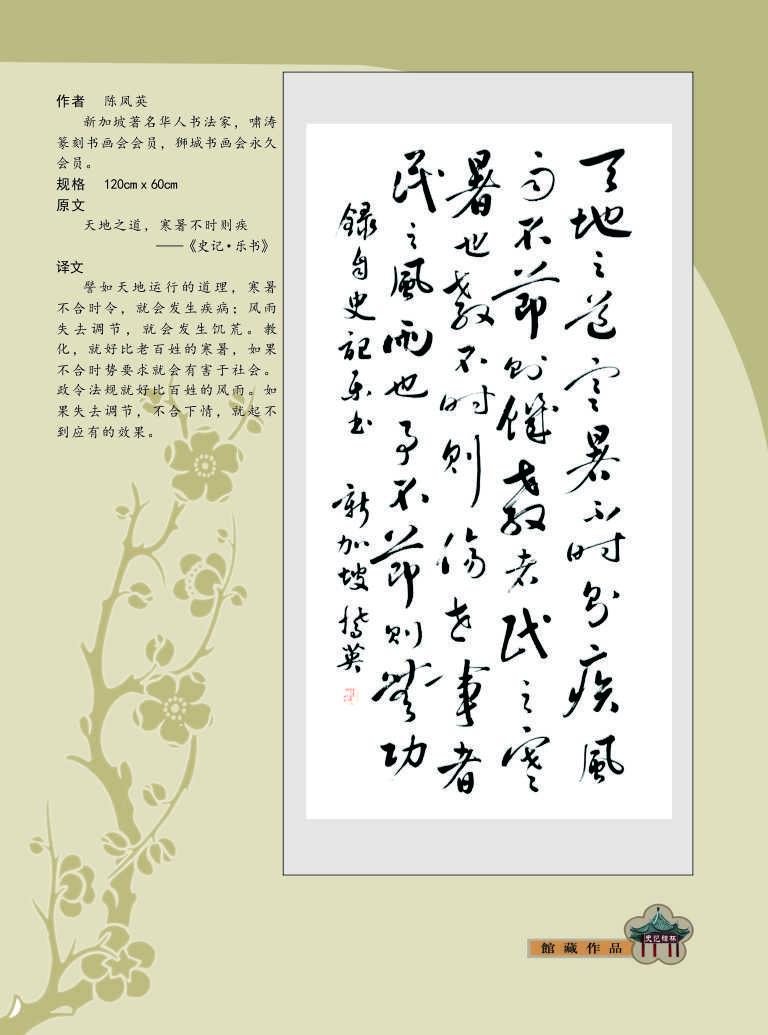 作者 陈凤英
新加坡著名华人书法家，啸涛
篆刻书画会会员，狮城书画会永久
会员。
规格 120cm x 60cm
原文
天地之道，寒暑不时则疾
——《史记·乐书》
译文
譬如天地运行的道理，寒暑
不合时令，就会发生疾病；风雨
失去调节，就会发生饥荒。教
化，就好比老百姓的寒暑，如果
不合时势要求就会有害于社会。
政令法规就好比百姓的风雨。如
果失去调节，不合下情，就起不
到应有的效果。
天地之道寒暑不时则疾風
雨不節则饑教者民之寒
暑也教不时則傷世事者
民之風雨也事不節則無功
録自史記乐书 新加坡 英
館藏作品
史记碑林